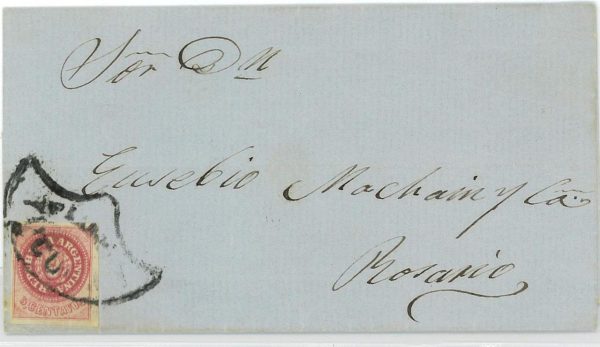 Sor Dn
Eusebio Machain y Ca
Rosario
REP. ARGENTINA
5 CENTAVOS